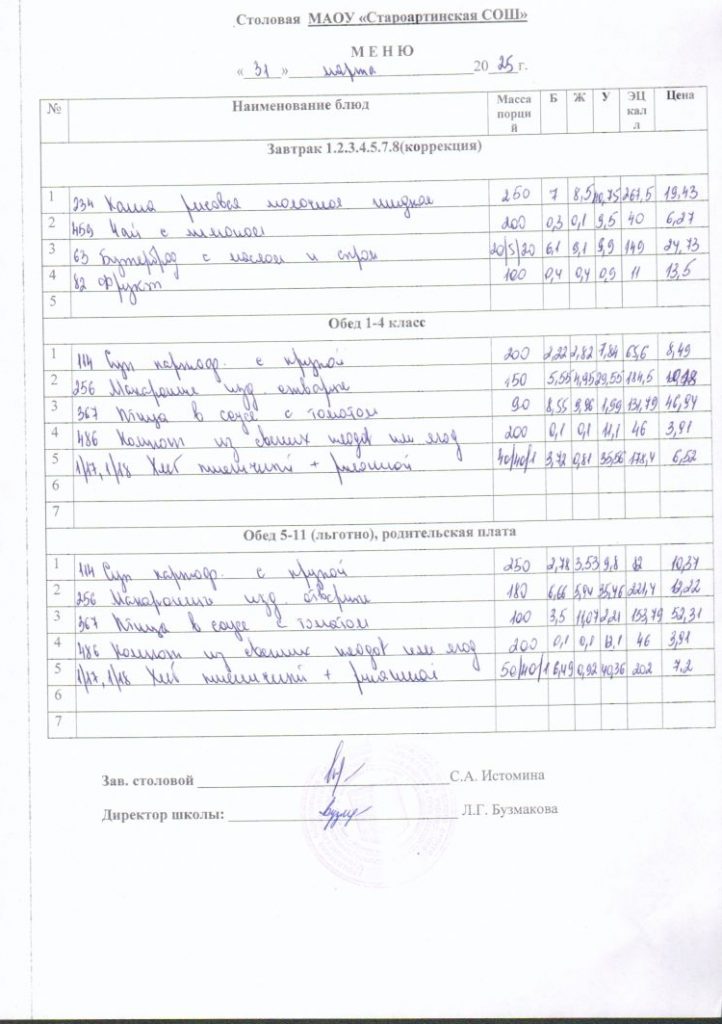 Столовая МАОУ «Староартинская СОШ»
М Е Н Ю
« 31 » марта 2025 г.
№ Наименование блюд Масса порций Б Ж У ЭЦ кал л Цена
Завтрак 1.2.3.4.5.7.8(коррекция)
1 234 Каша рисовая молочная жидкая 250 7 8,5 267,5 19,43
2 459 Чай с лимоном 200 0,3 0,1 9,5 40 6,27
3 63 Бутерброд с маслом и сыром 20/5/20 6,1 9,1 9,9 149 24,73
4 82 Фрукт 100 0,4 0,4 0,9 11 13,5
5
Обед 1-4 класс
1 114 Суп картоф. с крупой 200 2,22 2,82 7,84 65,6 8,49
2 256 Макароные изд. отварные 150 5,55 4,95 29,55 184,5
3 367 Птица в соусе с томатом 90 8,55 9,96 1,99 131,79 46,94
4 486 Компот из свежих плодов или ягод 200 0,1 0,1 11,1 46 3,91
5 1/17, 1/18 Хлеб пшеничный + ржаной 3,72 0,81 35,56 178,4 6,52
6
7
Обед 5-11 (льготно), родительская плата
1 114 Суп картоф. с крупой 250 2,78 3,53 9,8 82 10,37
2 256 Макароные изд. отварные 180 6,66 5,94 35,46 221,4 12,22
3 367 Птица в соусе с томатом 100 3,5 11,07 2,21 153,79 52,31
4 486 Компот из свежих плодов или ягод 200 0,1 0,1 46 3,91
5 1/17, 1/18 Хлеб пшеничный + ржаной 6,49 0,92 40,36 202 7,2
6
7
Зав. столовой С.А. Истомина
Директор школы: Л.Г. Бузмакова